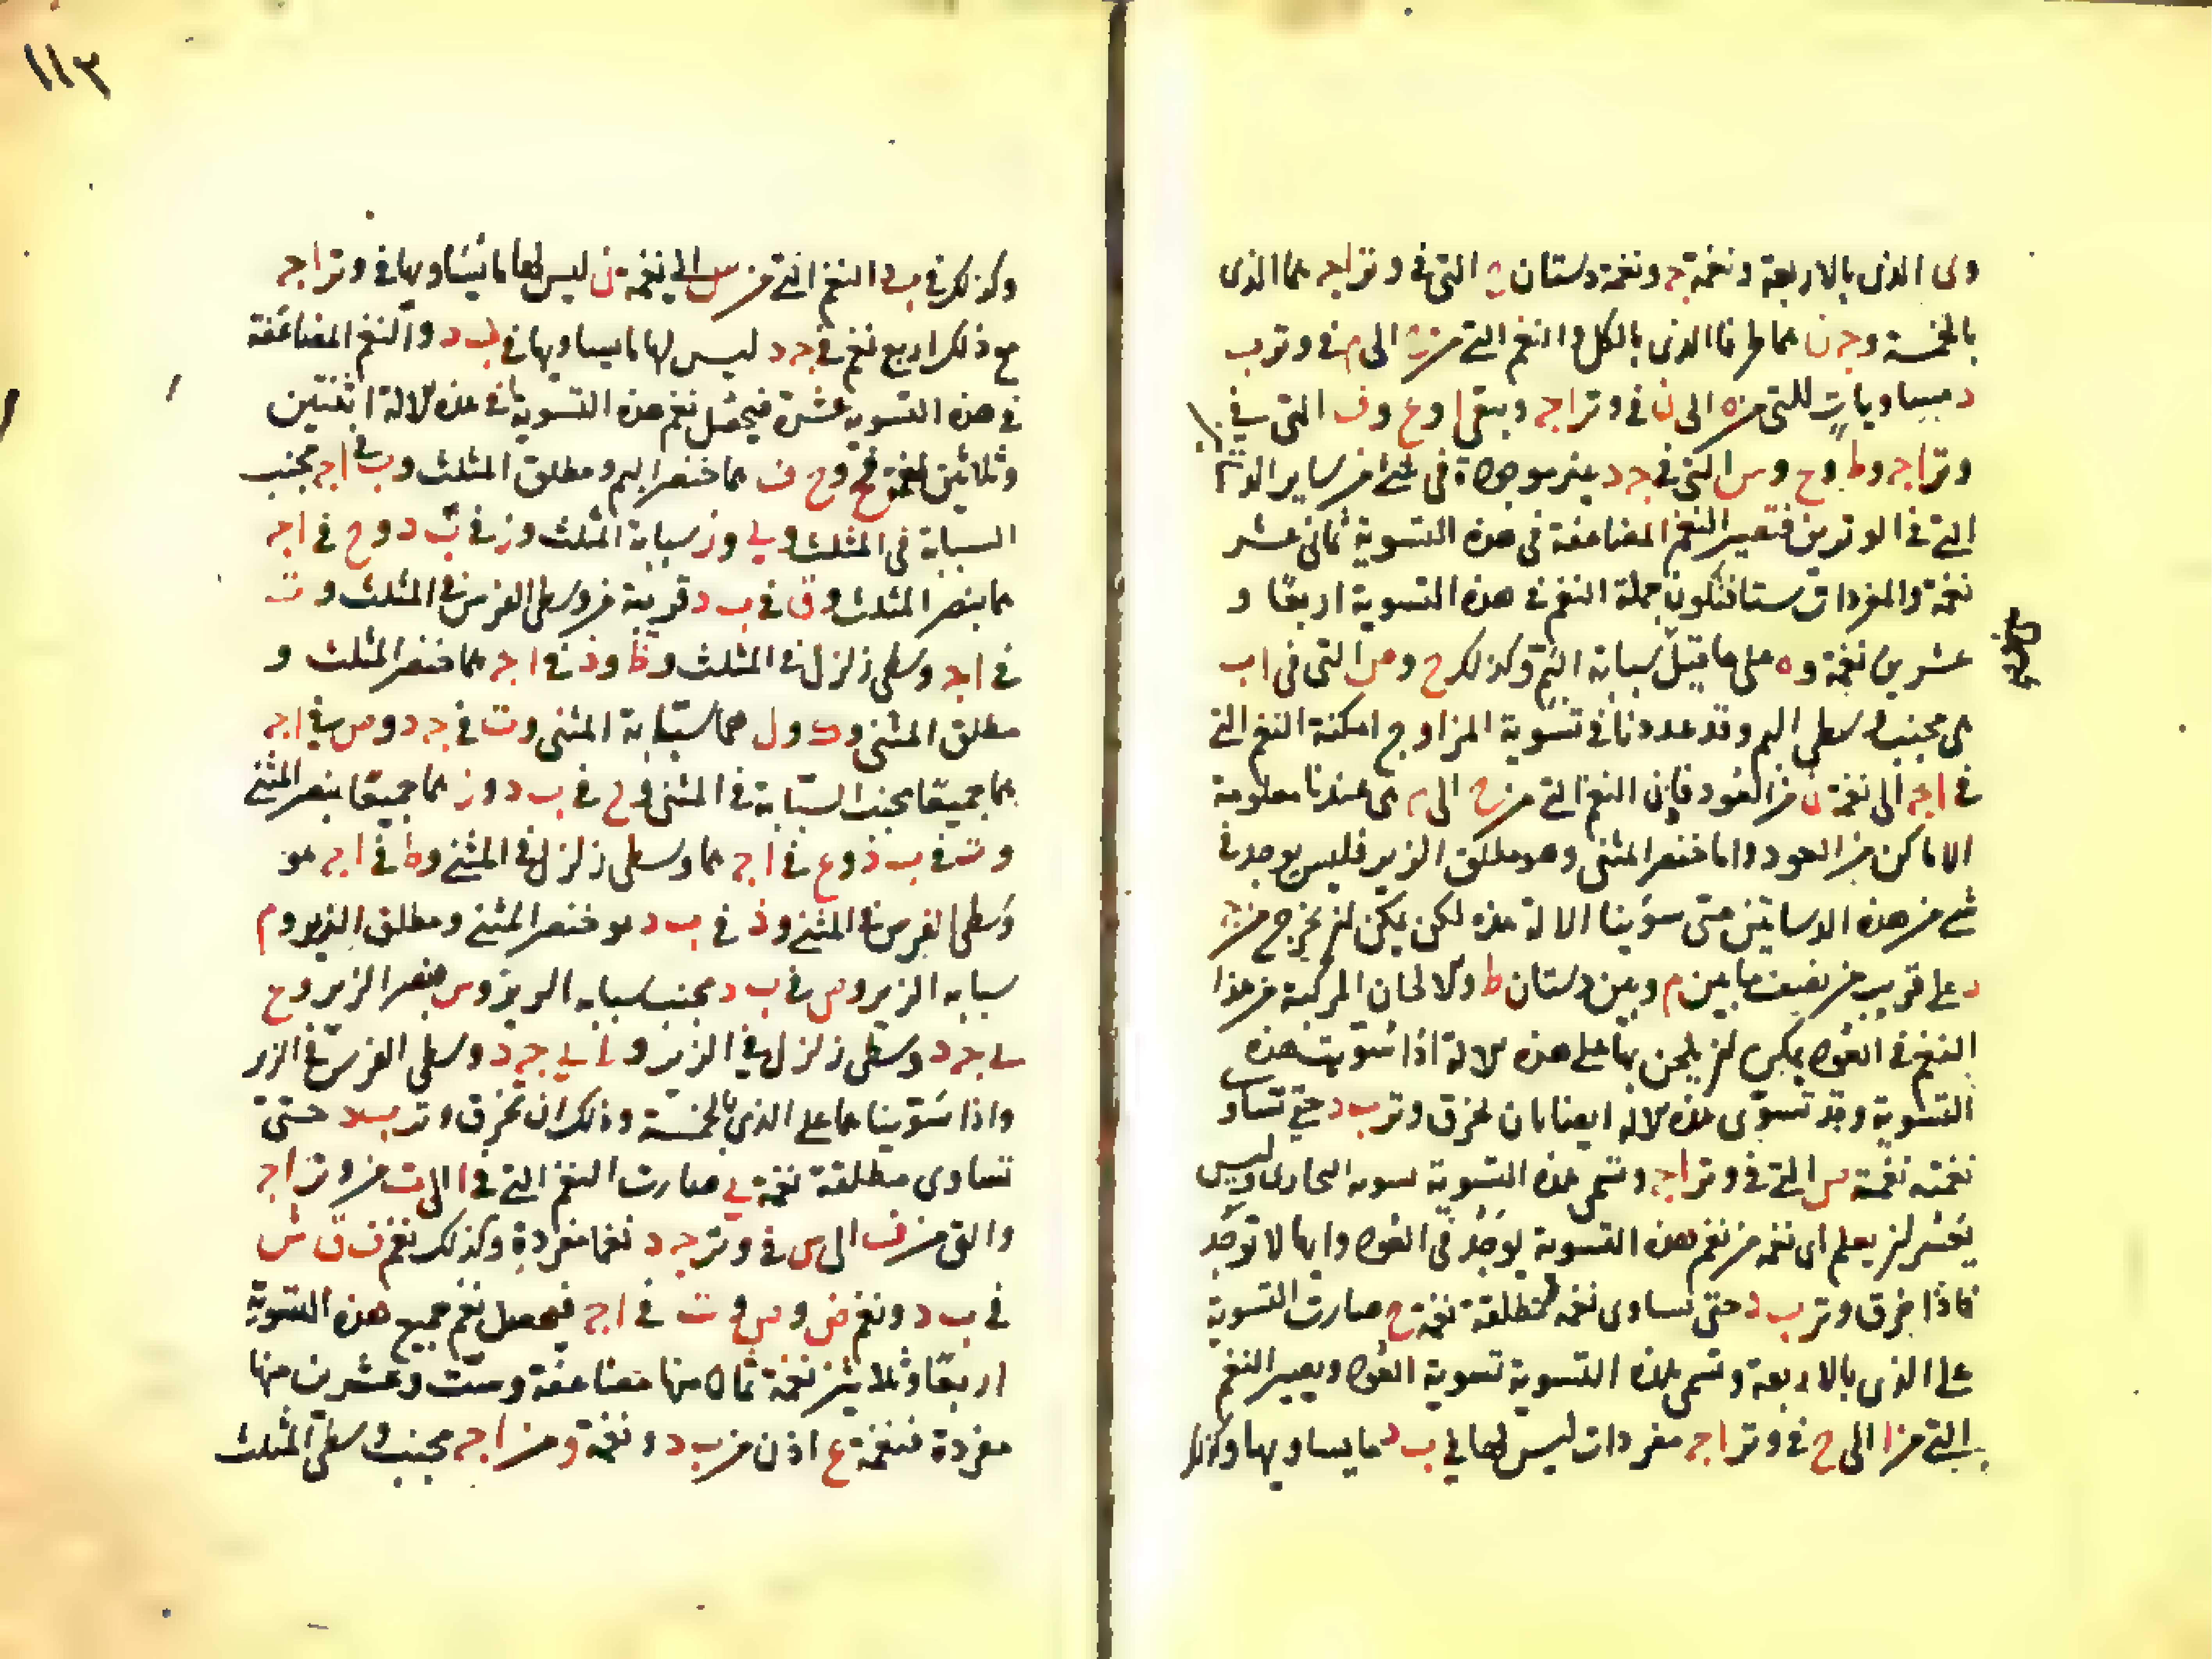 وى الذى بالاربعة ونغمة ج ونغمة دستان التى فى وتر اج هما الذى
بالخمسة وج ن هما طرفا الذى بالكل والنغم التى من الى م فى وتر ب
د مساويات للتى من ه الى ن فى وتر اج ويبقى ا وع وف التى فى
وتر اج وط وح وس التى فى ج د غير موجودة فى شئ من ساير
التى فى الوترين فتصير النغم المضاعفة فى هذه التسوية ثمانى عشر
نغمة والمفردات ستا فتكون جملة النغم فى هذه التسوية اربعا و
عشرين نغمة و ه على ما قيل سبابة البم وكذلك ح وص التى فى اب
هى مجنب وسطى البم وقد عددنا فى تسوية المزاوج امكنة النغم التى
فى اج الى نغمة ن من العود فان النغم التى من ح الى م هى عندنا معلومة
الاماكن من العود واما خنصر المثنى وهو مطلق الزير فليس يوجد فى
شئ من هذه الدساتين متى سوينا الالة هذه لكن يمكن ان يخرج من
د على قريب من نصف ما بين م وبين دستان ط والالحان المركبة من هذا
النغم فى العود يمكن ان يلحن بها على هذه الالة اذا سويت هذه
التسوية وقد تسوى هذه الالة ايضا بان يحزق وتر ب د حتى تساوى
نغمته نغمة س التى فى وتر اج وتسمى هذه التسوية تسوية البخارى وليس
يعسر ان يعلم اى نغمة من نغم هذه التسوية توجد فى العود وايها لا توجد
فاذا حزق وتر ب د حتى تساوى نغمة مطلقة نغمة ح صارت التسوية
على الذى بالاربعة وتسمى هذه التسوية تسوية العود ويصير النغم
التى من ا الى ح فى وتر اج مفردات ليس لها فى ب د ما يساويها وكذلك
١١٣
وكذلك فى ب د النغم التى من س الى نغمة ن ليس لها ما يساويها فى وتر اج
مع ذلك اربع نغم فى ج د ليس لها ما يساويها فى ب د والنغم المضاعفة
فى هذه التسوية عشرة فيحصل نغم هذه التسوية فى هذه الالة اثنتين
وثلاثين نغمة وح ف هما خنصر البم ومطلق المثلث وب فى اج مجنب
السبابة فى المثلث وى وز سبابة المثلث وز فى ب د وح فى اج
هما بنصر المثلث وق فى ب د قريبة من وسطى الفرس فى المثلث و ت
فى اج وسطى زلزل فى المثلث وظ وذ فى اج هما خنصر المثلث و
مطلق المثنى وك ول هما سبابة المثنى وت فى ج د وص فى اج
هما جميعا مجنب السبابة فى المثنى وح فى ب د وز هما جميعا بنصر المثنى
وت فى ب د وع فى اج هما وسطى زلزل فى المثنى وط فى اج هو
وسطى الفرس فى المثنى وذ فى ب د هو خنصر المثنى ومطلق الزير وم
سبابه الزير وص فى ب د مجنب سبابه الزير وس بنصر الزير وح
ج د وسطى زلزل فى الزير و ج د وسطى الفرس فى الزير
واذا سوينا هما على الذى بالخمسة وذلك ان يحزق وتر ب د حتى
تساوى مطلقة نغمة ى صارت النغم التى فى ا الى ت من وتر اج
والتى من ف الى س فى وتر ج د نغما مفردة وكذلك نغم ف ق ش
فى ب د ونغم ض وص و ت فى اج فيحصل نغم جميع هذه التسوية
اربعا وثلاثين نغمة ثمان منها مضاعفة وست وعشرين منها
مفردة فنغمة ع اذن من ب د ونغمة و من اج مجنب وسطى المثلث